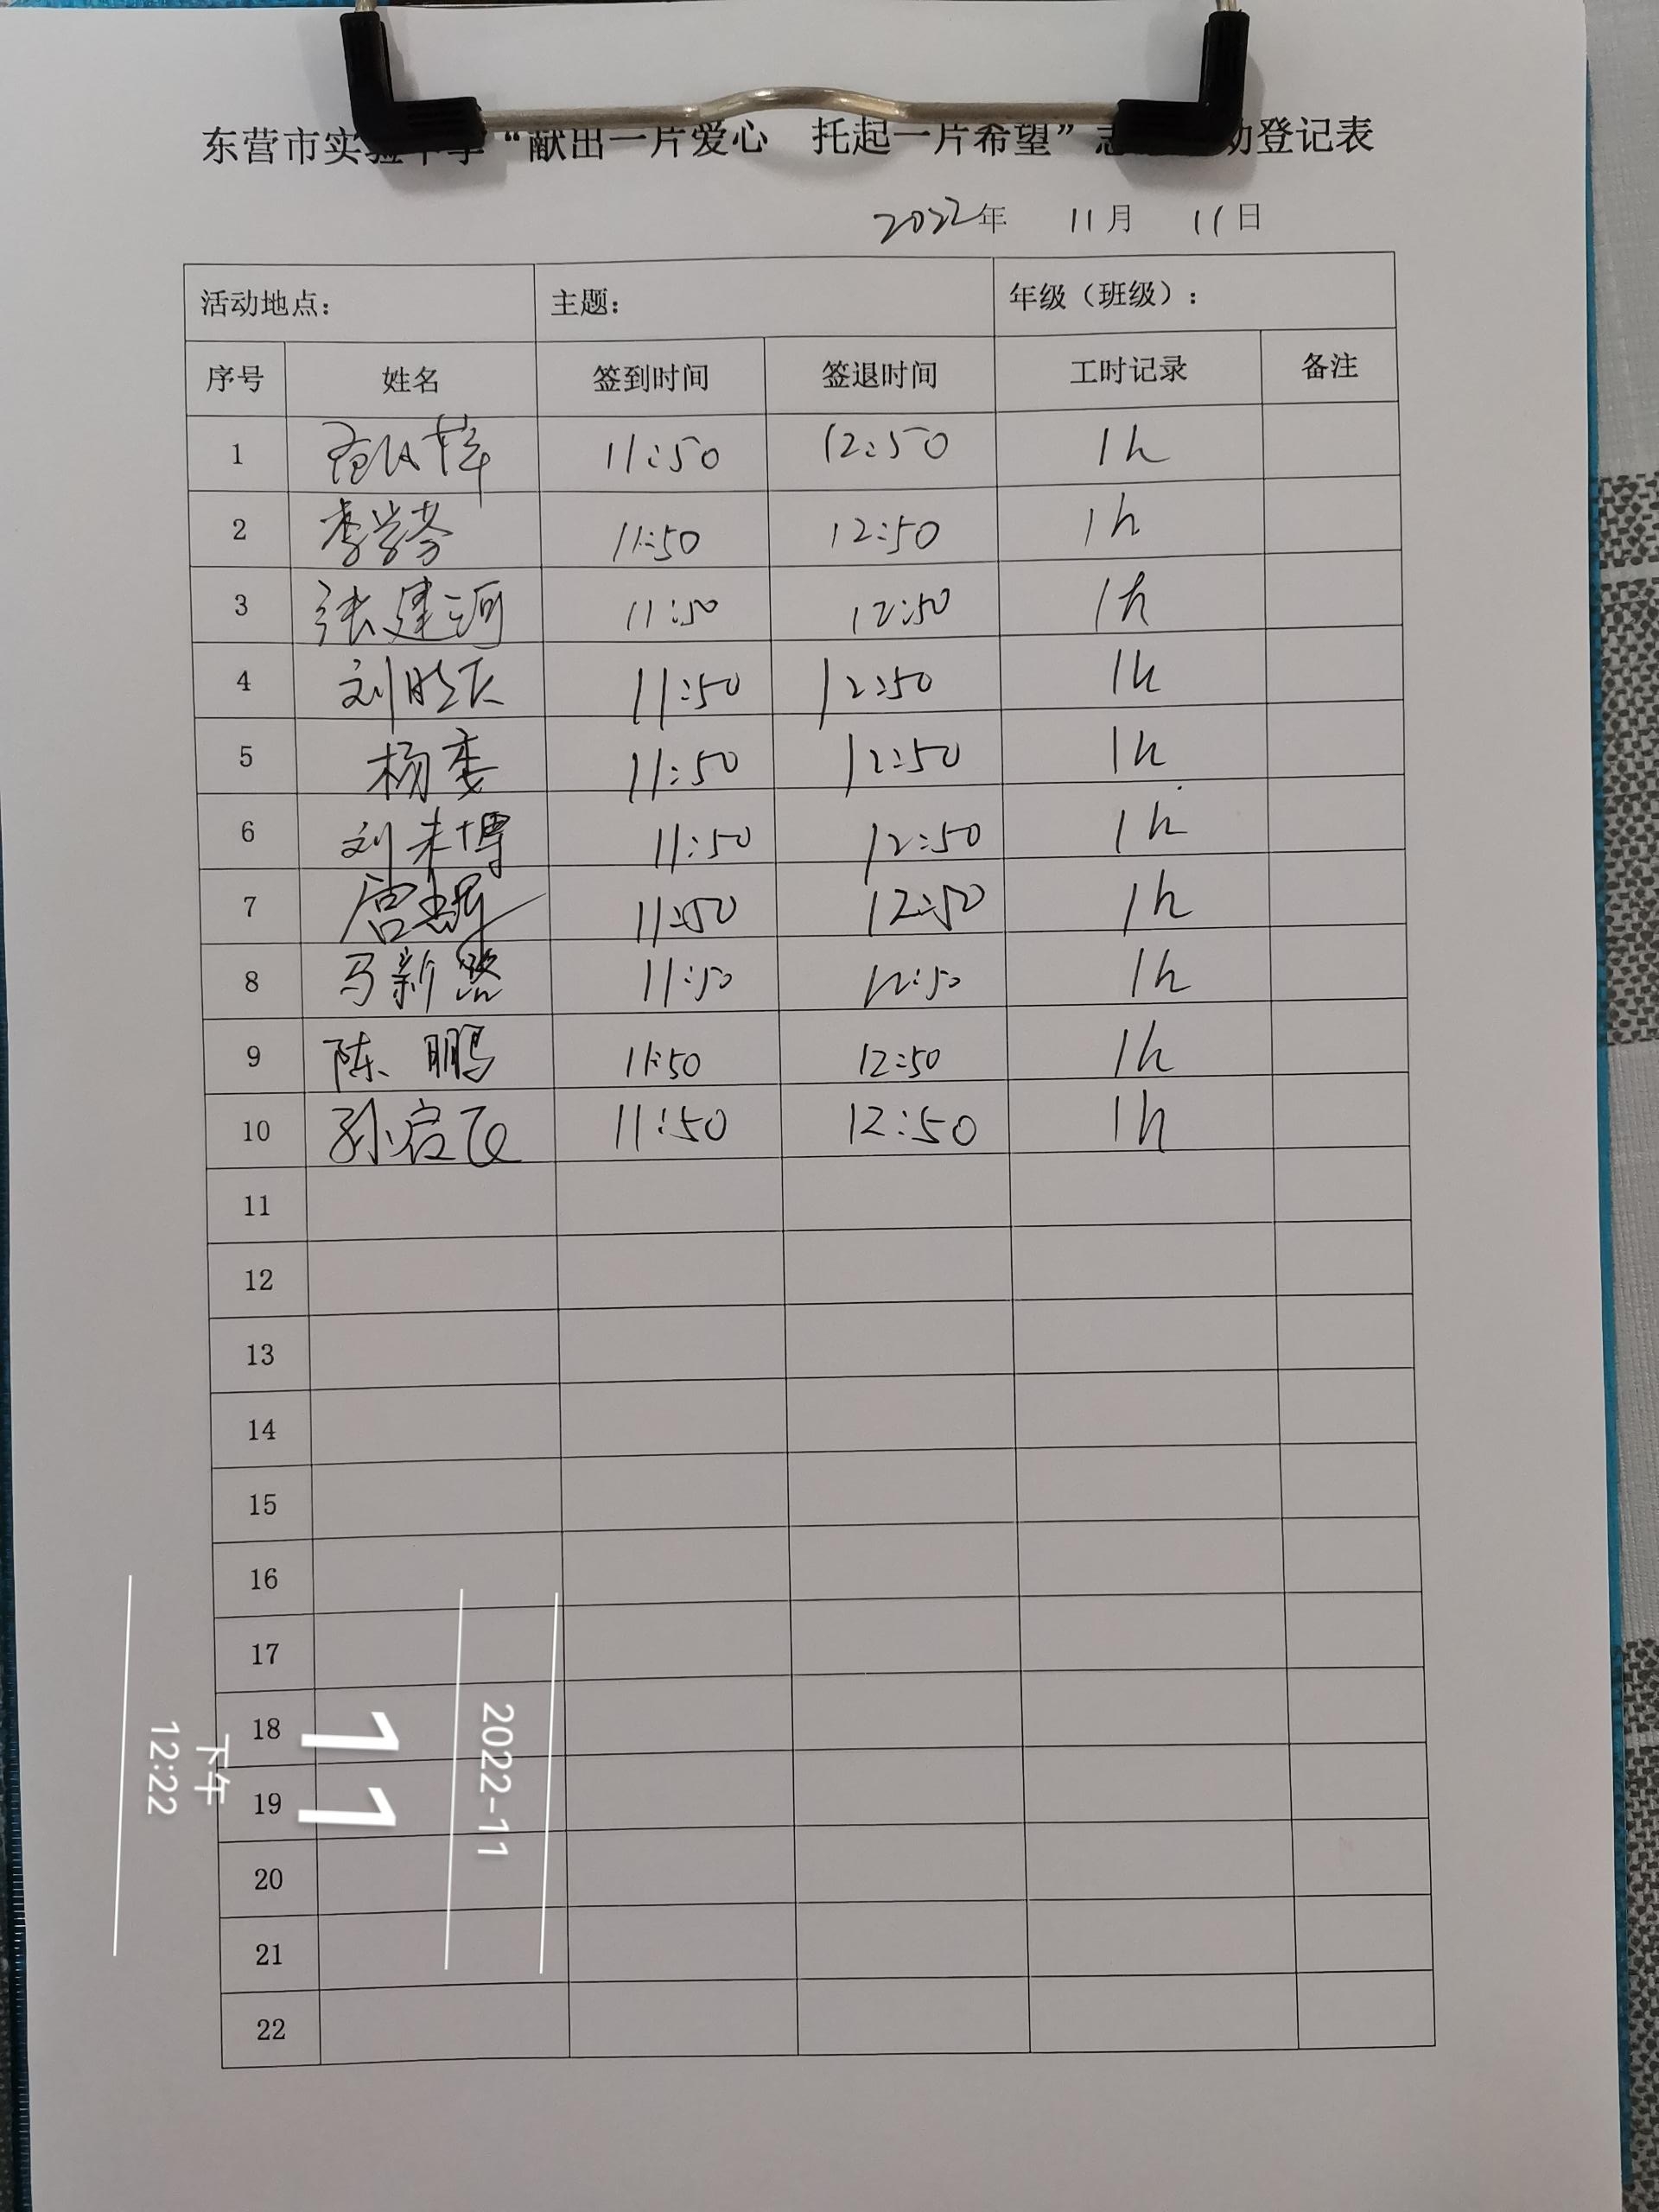 东营市实验中学“献出一片爱心 托起一片希望”志 动登记表
2022年 11月 11日
活动地点： 主题： 年级（班级）：
序号 姓名 签到时间 签退时间 工时记录 备注
1 11:50 12:50 1h
2 李学芬 11:50 12:50 1h
3 张建河 11:50 12:50 1h
4 刘 11:50 12:50 1h
5 杨 11:50 12:50 1h
6 刘来博 11:50 12:50 1h
7 11:50 12:50 1h
8 马新 11:50 12:50 1h
9 陈鹏 11:50 12:50 1h
10 孙启飞 11:50 12:50 1h
11
12
13
14
15
16
17
18
19
20
21
22
2022-11
11
下午
12:22